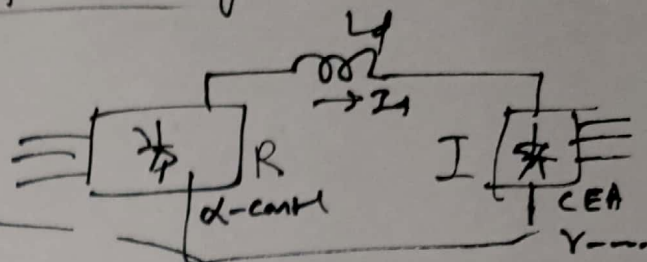 Ld
→ Id
R
I
α-contl
CEA
γ----